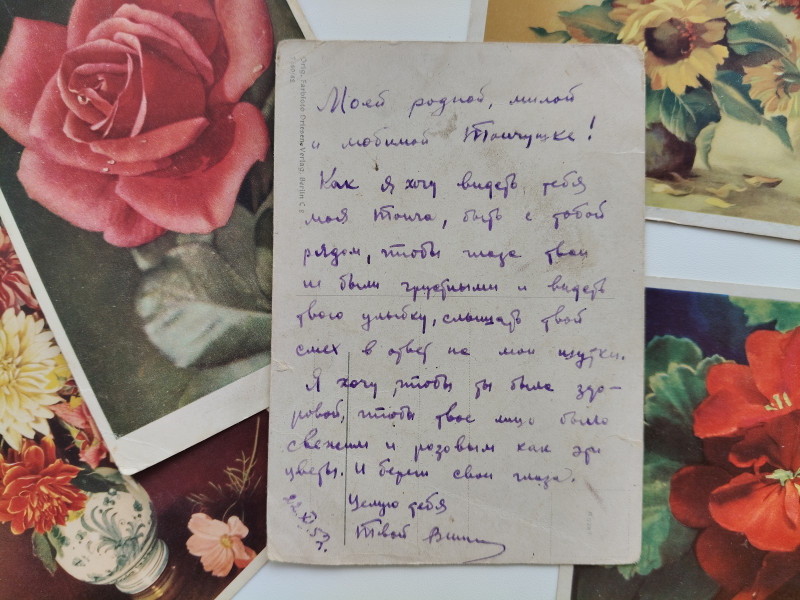 Моей родной, милой
и любимой Тончушке!
Как я хочу видеть тебя
моя Тонча, быть с тобой
рядом, чтобы глаза твои
не были грустными и видеть
твою улыбку, слышать твой
смех в ответ на мои шутки.
Я хочу, чтобы ты была здо-
ровой, чтобы твое лицо было
свежим и розовым как эти
цветы. И береги свои глаза.
Целую тебя
Твой
53г.
Verlag, Berlin C 2